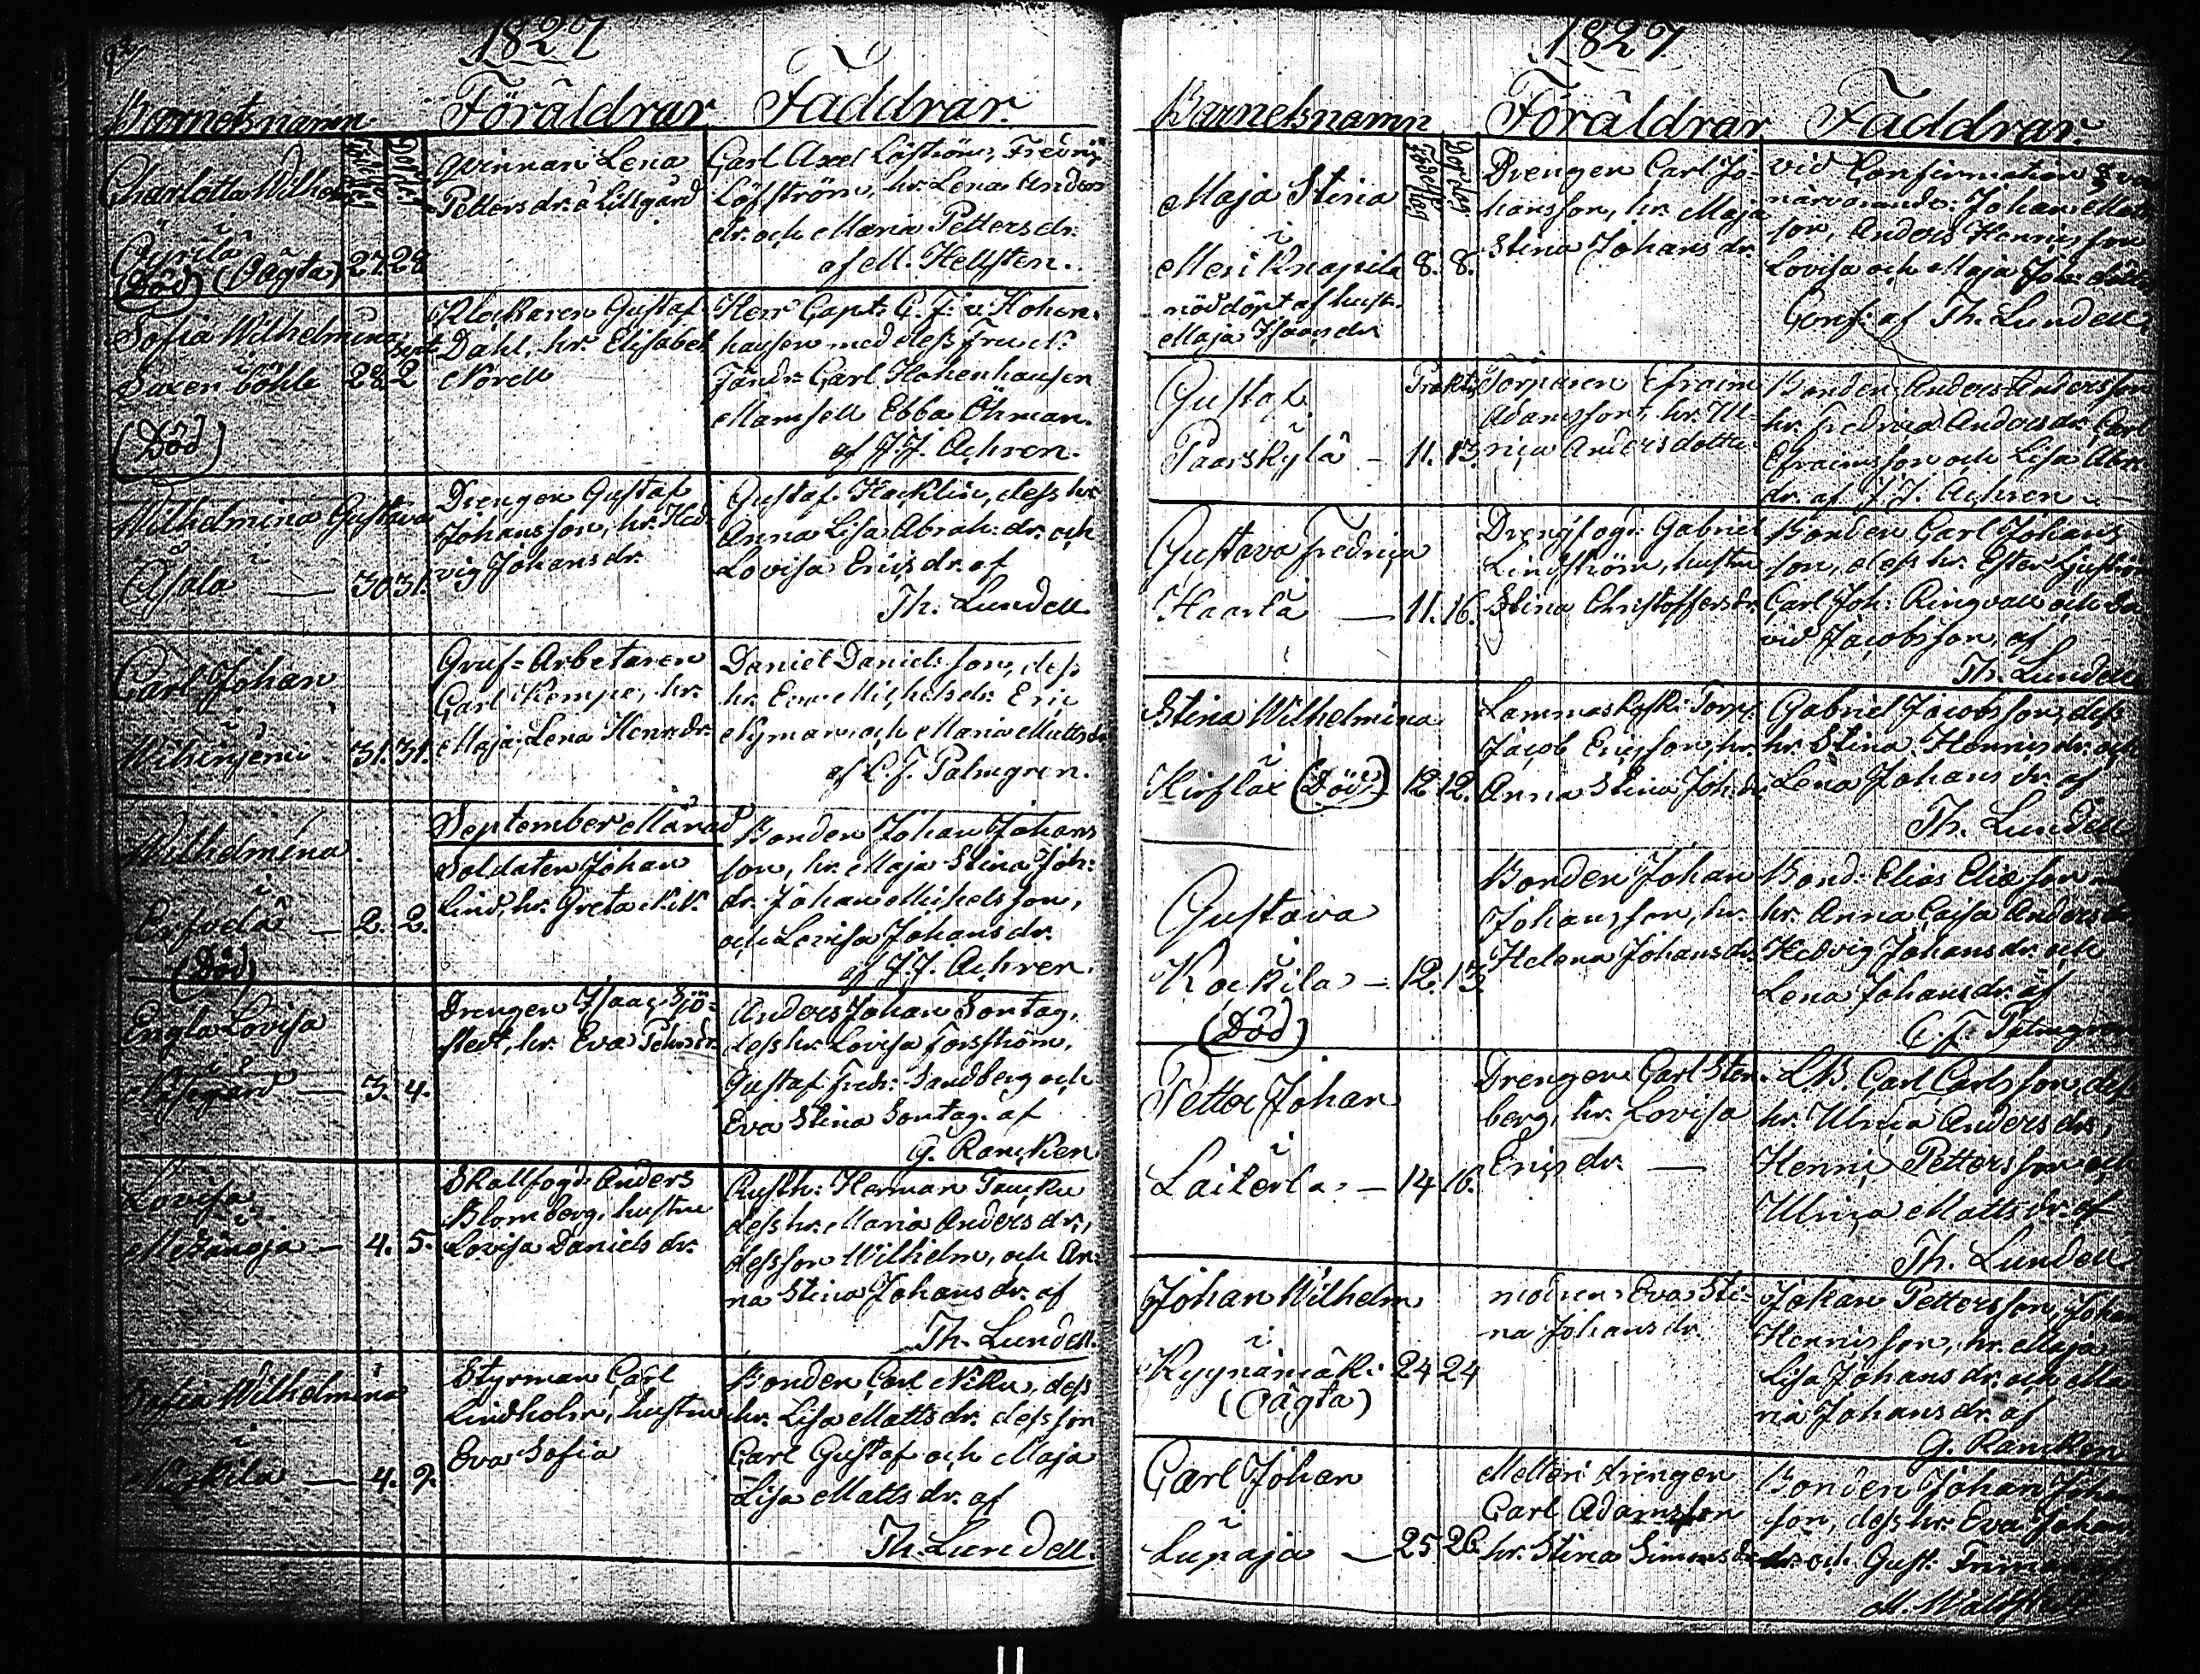 1827
Barnetsnamn Föräldrar Faddrar.
Charlotta Wilhel
i
Kyrilä
(Död) (Oägta) 27. 28
Qvinnan Lena
Petters dr. å Lillgård
Carl Axel Löfström, Fredric
Löfström, hr. Lena Anders
dr. och Maria Petters dr.
af M. Hellsten.
Sofia Wilhelmina
i
Saxen böhle 28 Sept. 2
(Död)
Klockaren Gustaf
Dahl, hr. Elisabet
Norell
Herr Capt: C. F. v. Hohen
hausen med dess Fru N:
Fändr: Carl Hohenhausen
Mamsell Ebba Öhman.
af J. J. Achren.
Wilhelmina Gustava
i
Asola — 30 31.
Drengen Gustaf
Johansson, hr. Hed
vig Johans dr.
Gustaf Hacklin, dess hr
Anna Lisa Abrah: dr. och
Lovisa Erics dr. af
Th. Lundell.
Carl Johan
i
31. 31.
Gruf=Arbetaren
Carl Kempe, hr.
Maja Lena Henr. dr.
Daniel Daniels son, dess
hr. Eva Michels dr. Eric
Nyman och Maria Matts dr
af C. F. Palmgren.
September Månad
Wilhelmina
i
2. 2.
(Död)
Soldaten Johan
Lind, hr. Greta N. N.
Bonden Johan Johans
son, hr. Maja Stina Joh:
dr. Johan Michels son,
och Lovisa Johans dr.
af J. J. Achren.
Engla Lovisa
i
— 3. 4.
Drengen Isaac Sjö=
stedt, hr. Eva Pehrs dr.
Anders Johan Sontag,
dess hr. Lovisa Forsström,
Gustaf Fredr: Sandberg och
Eva Stina Sontag. af
G. Rancken
Lovisa
i
— 4. 5.
Skallfogd: Anders
Blomberg, hustru
Lovisa Daniels dr.
Rusth: Herman
dess hr. Maria Anders dr.,
dess son Wilhelm, och An
na Stina Johans dr. af
Th. Lundell.
Sofia Wilhelmina
i
— 4. 9.
Styrman Carl
Lindholm, hustru
Eva Sofia
Bonden Carl Niku, dess
hr. Lisa Matts dr. dess son
Carl Gustaf och Maja
Lisa Matts dr. af
Th. Lundell.
1827.
Barnetsnamn Föräldrar Faddrar.
Maja Stina
i
Meri Knapila 8. 8.
nöddöpt af hust.
Maja Isaacs dr
Drengen Carl Jo=
hansson, hr. Maja
Stina Johans dr.
Vid Confirmation
närvarande: Johan Matts
son, Anders Henricsson
Lovisa och Maja Joh. döttr.
Conf: af Th. Lundell
Gustaf
i
Paarskylä — 11. 13.
Torparen Efraim
Adamsson, hr. Ul=
rica Andersdotter
Bonden Anders Andersson
hr. Fredrica Anders dr. Carl
Efraimsson och Lisa Abr.
dr. af J. J. Achren —
Gustava Fredrica
i
Haarla — 11. 16.
Drengfogd: Gabriel
Lindström, hustru
Stina Christoffers dr.
Bonden Carl Johans
son, dess hr. Ester
Carl Joh: Ringvall och Da
vid Jacobsson, af
Th. Lundell
Stina Wilhelmina
i
Kirflax (Död) 12 12.
Torp.
Jacob Ericsson, hr.
Anna Stina Joh. dr.
Gabriel Jacobsson, dess
hr. Stina Henrics dr. och
Lena Johans dr. af
Th. Lundell
Gustava
i
Kockila — 12. 13.
(Död)
Bonden Johan
Johansson, hr.
Helena Johans dr.
Bond: Elias Elia son
hr. Anna Cajsa Anders dr
Hedvig Johans dr. och
Lena Johans dr. af
C. F. Palmgren
Petter Johan
i
Laiterla — 14 16.
Drengen Carl Sten=
berg, hr. Lovisa
Erics dr. —
L.B. Carl Carls son, dess
hr. Ulrica Anders dr.,
Henric Petters son och
Ulrica Matts dr. af
Th. Lundell
Johan Wilhelm
i
Kyynämäki 24 24
(Oägta)
modren Eva Sti=
na Johans dr.
Johan Petters son, Johan
Henrics son, hr. Maja
Lisa Johans dr. och Ma
ria Johans dr. af
G. Rancken
Carl Johan
i
Lupaja — 25 26.
drengen
Carl Adamsson
hr. Stina Simons dr
Bonden Johan Johan
son, dess hr. Eva Johans
dr. och Gust: